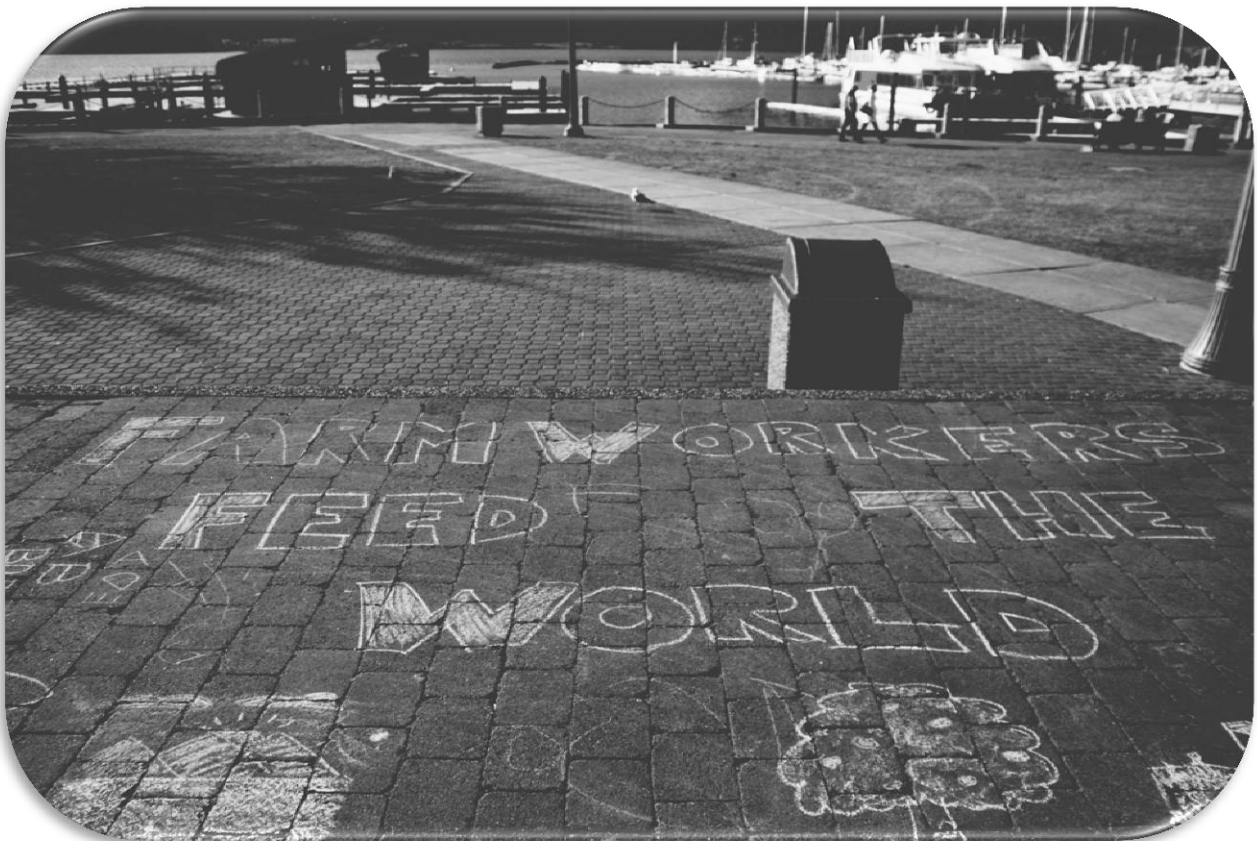 FARM WORKERS
FEED THE
WORLD